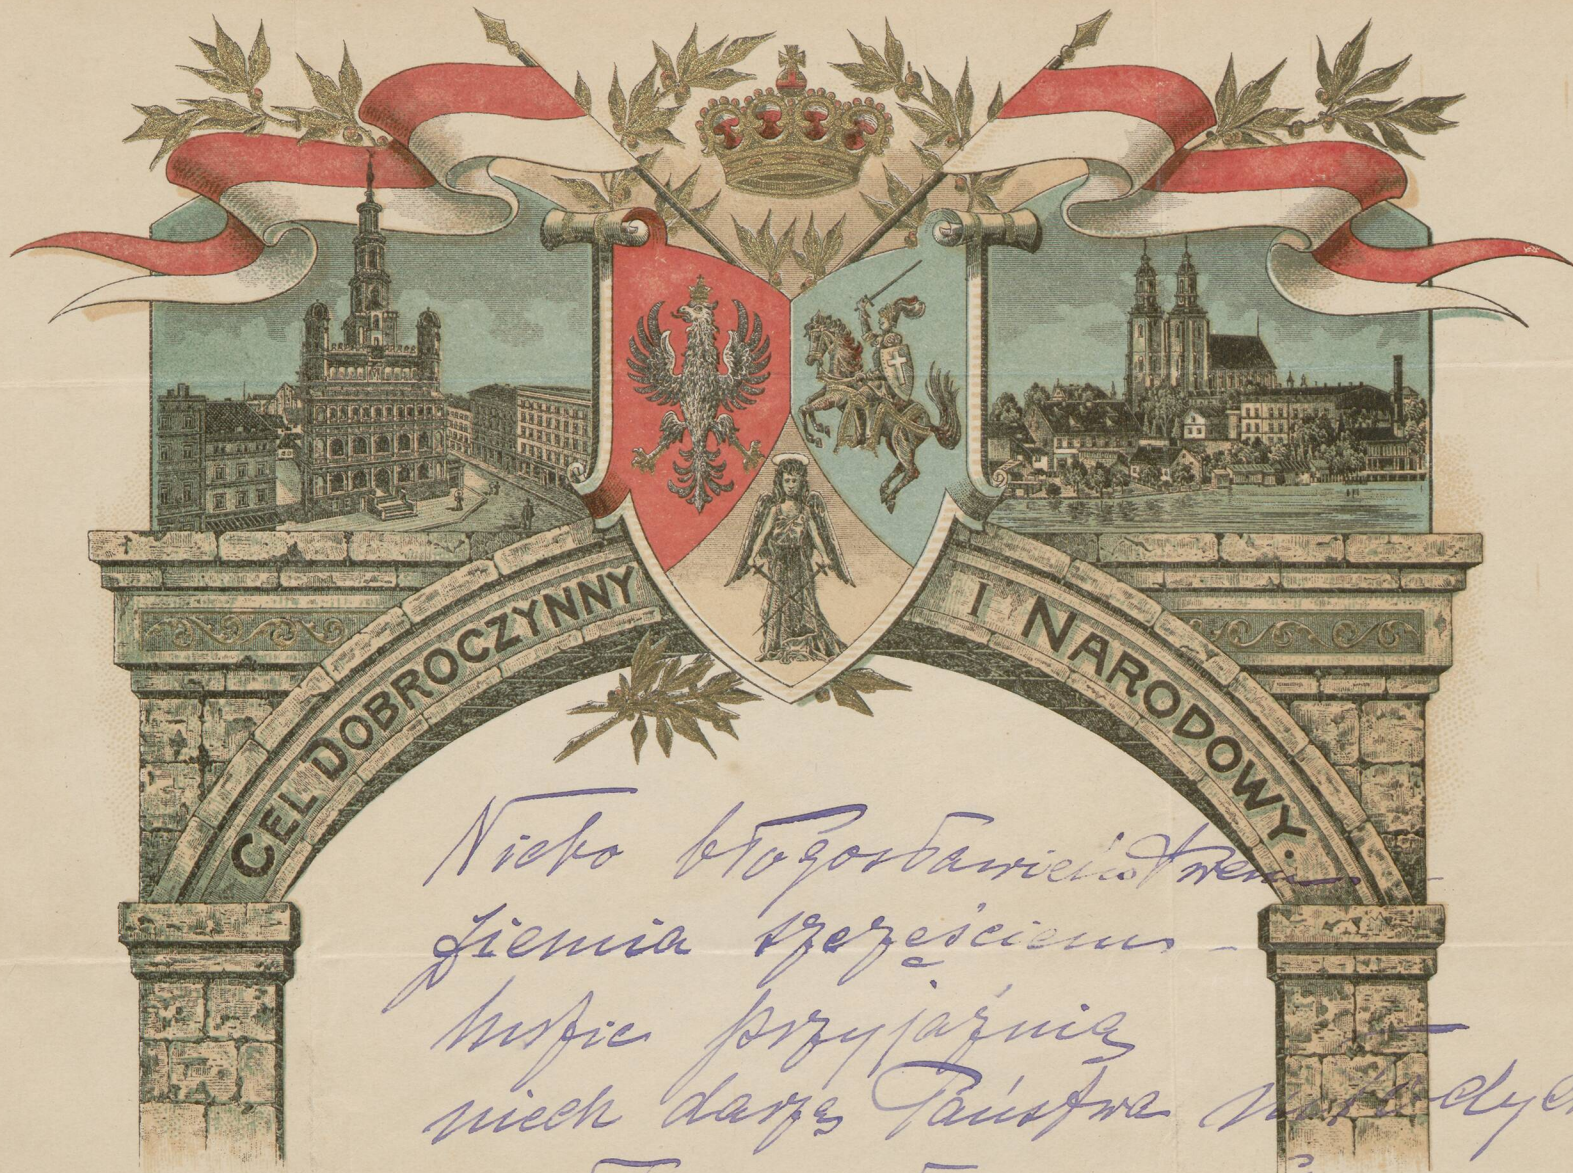 CEL DOBROCZYNNY I NARODOWY.
Niebo błogosławieństwem
Ziemia szczęściem –
ludzie przyjaźnią –
niech darzą Państwa młodych